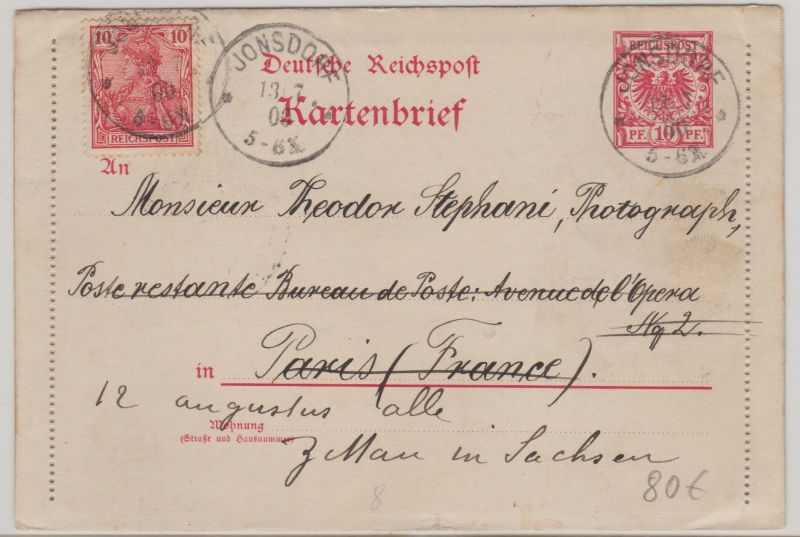 10 10
REICHSPOST
JONSDORF
13/7
00
5-6N
Deutsche Reichspost
Kartenbrief
REICHSPOST
PF. 10 PF.
JONSDORF
5-6N
An
Monsieur Theodor Stephani, Photograph,
Poste restante Bureau de Poste: Avenue de l'Opera
No 2.
in Paris (France).
12 augustus alle
Wohnung
(Straße und Hausnummer)
Zittau in Sachsen
8
80€